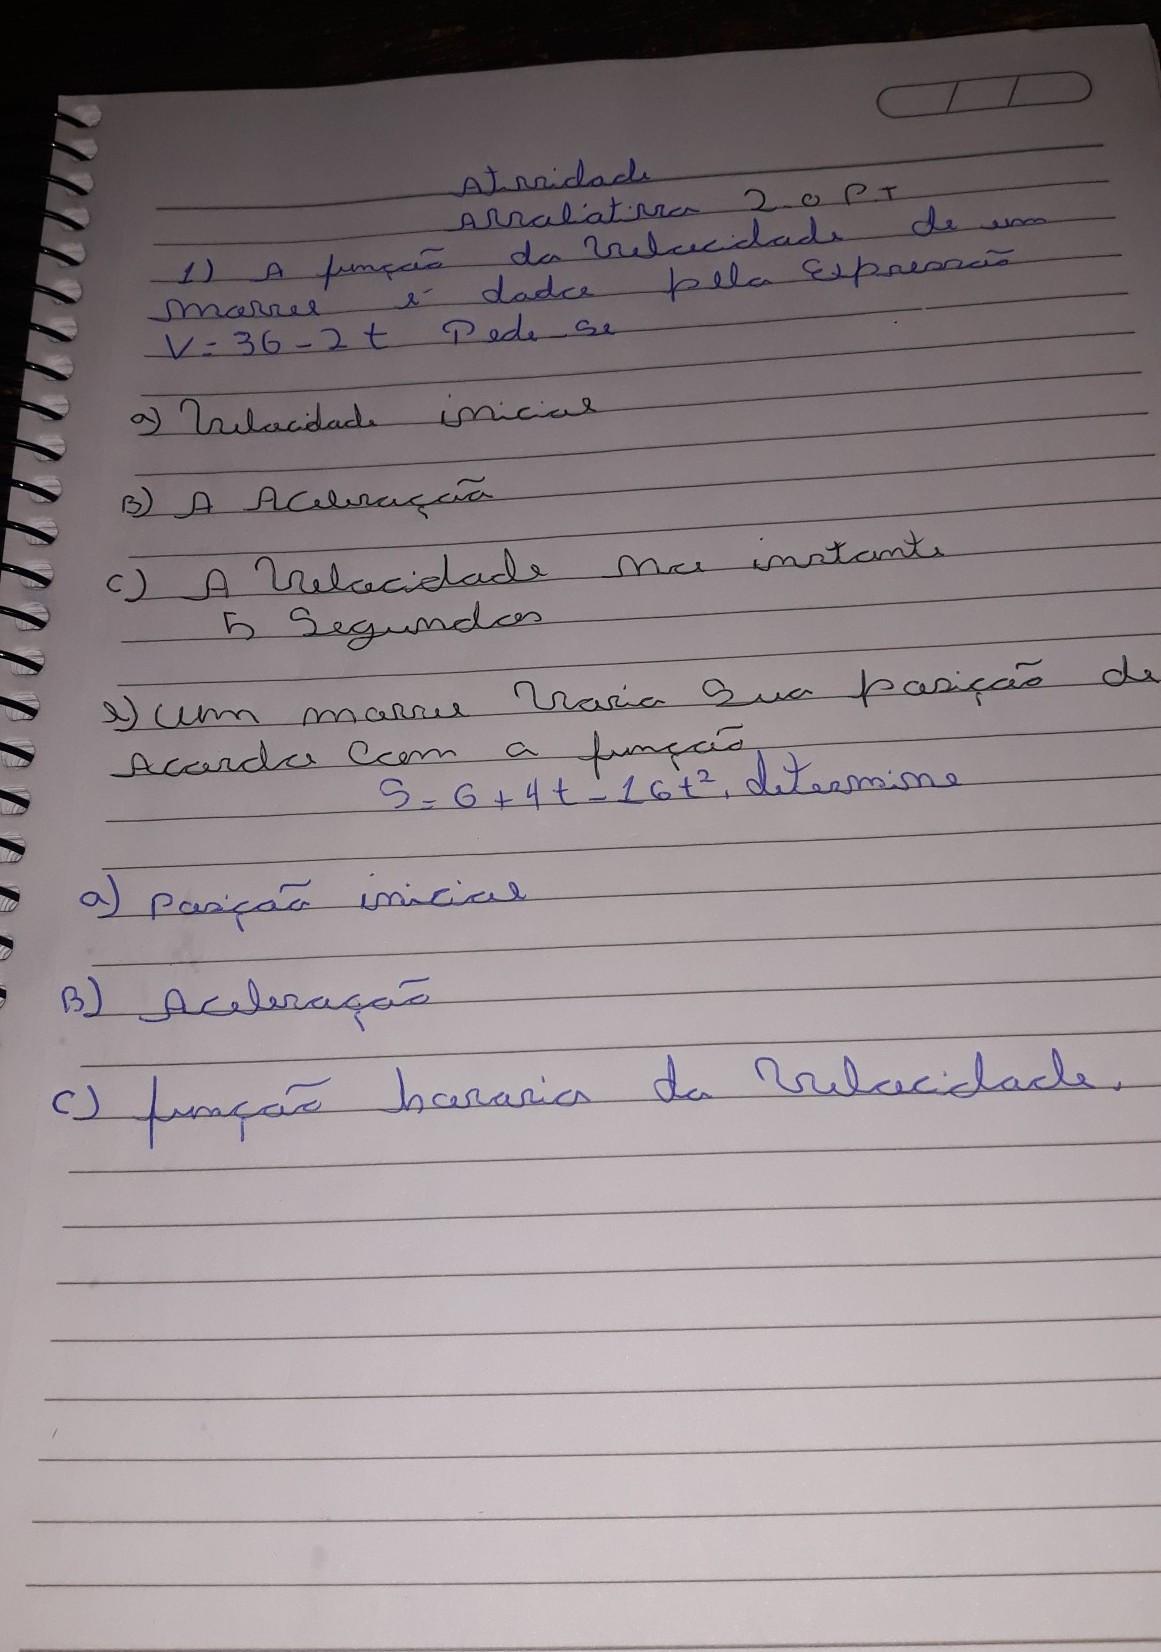 Atividade
Avaliativa 2.0 P.T
1) A função da Velocidade de um
movel é dada pela Expressão
V = 36 - 2t Pede-se
a) Velocidade inicial
B) A Aceleração
C) A Velocidade no instante
5 Segundos
2) Um movel Varia Sua posição de
Acordo Com a função
S = 6 + 4t - 16t², determine
a) posição inicial
B) Aceleração
C) função horaria da Velocidade.